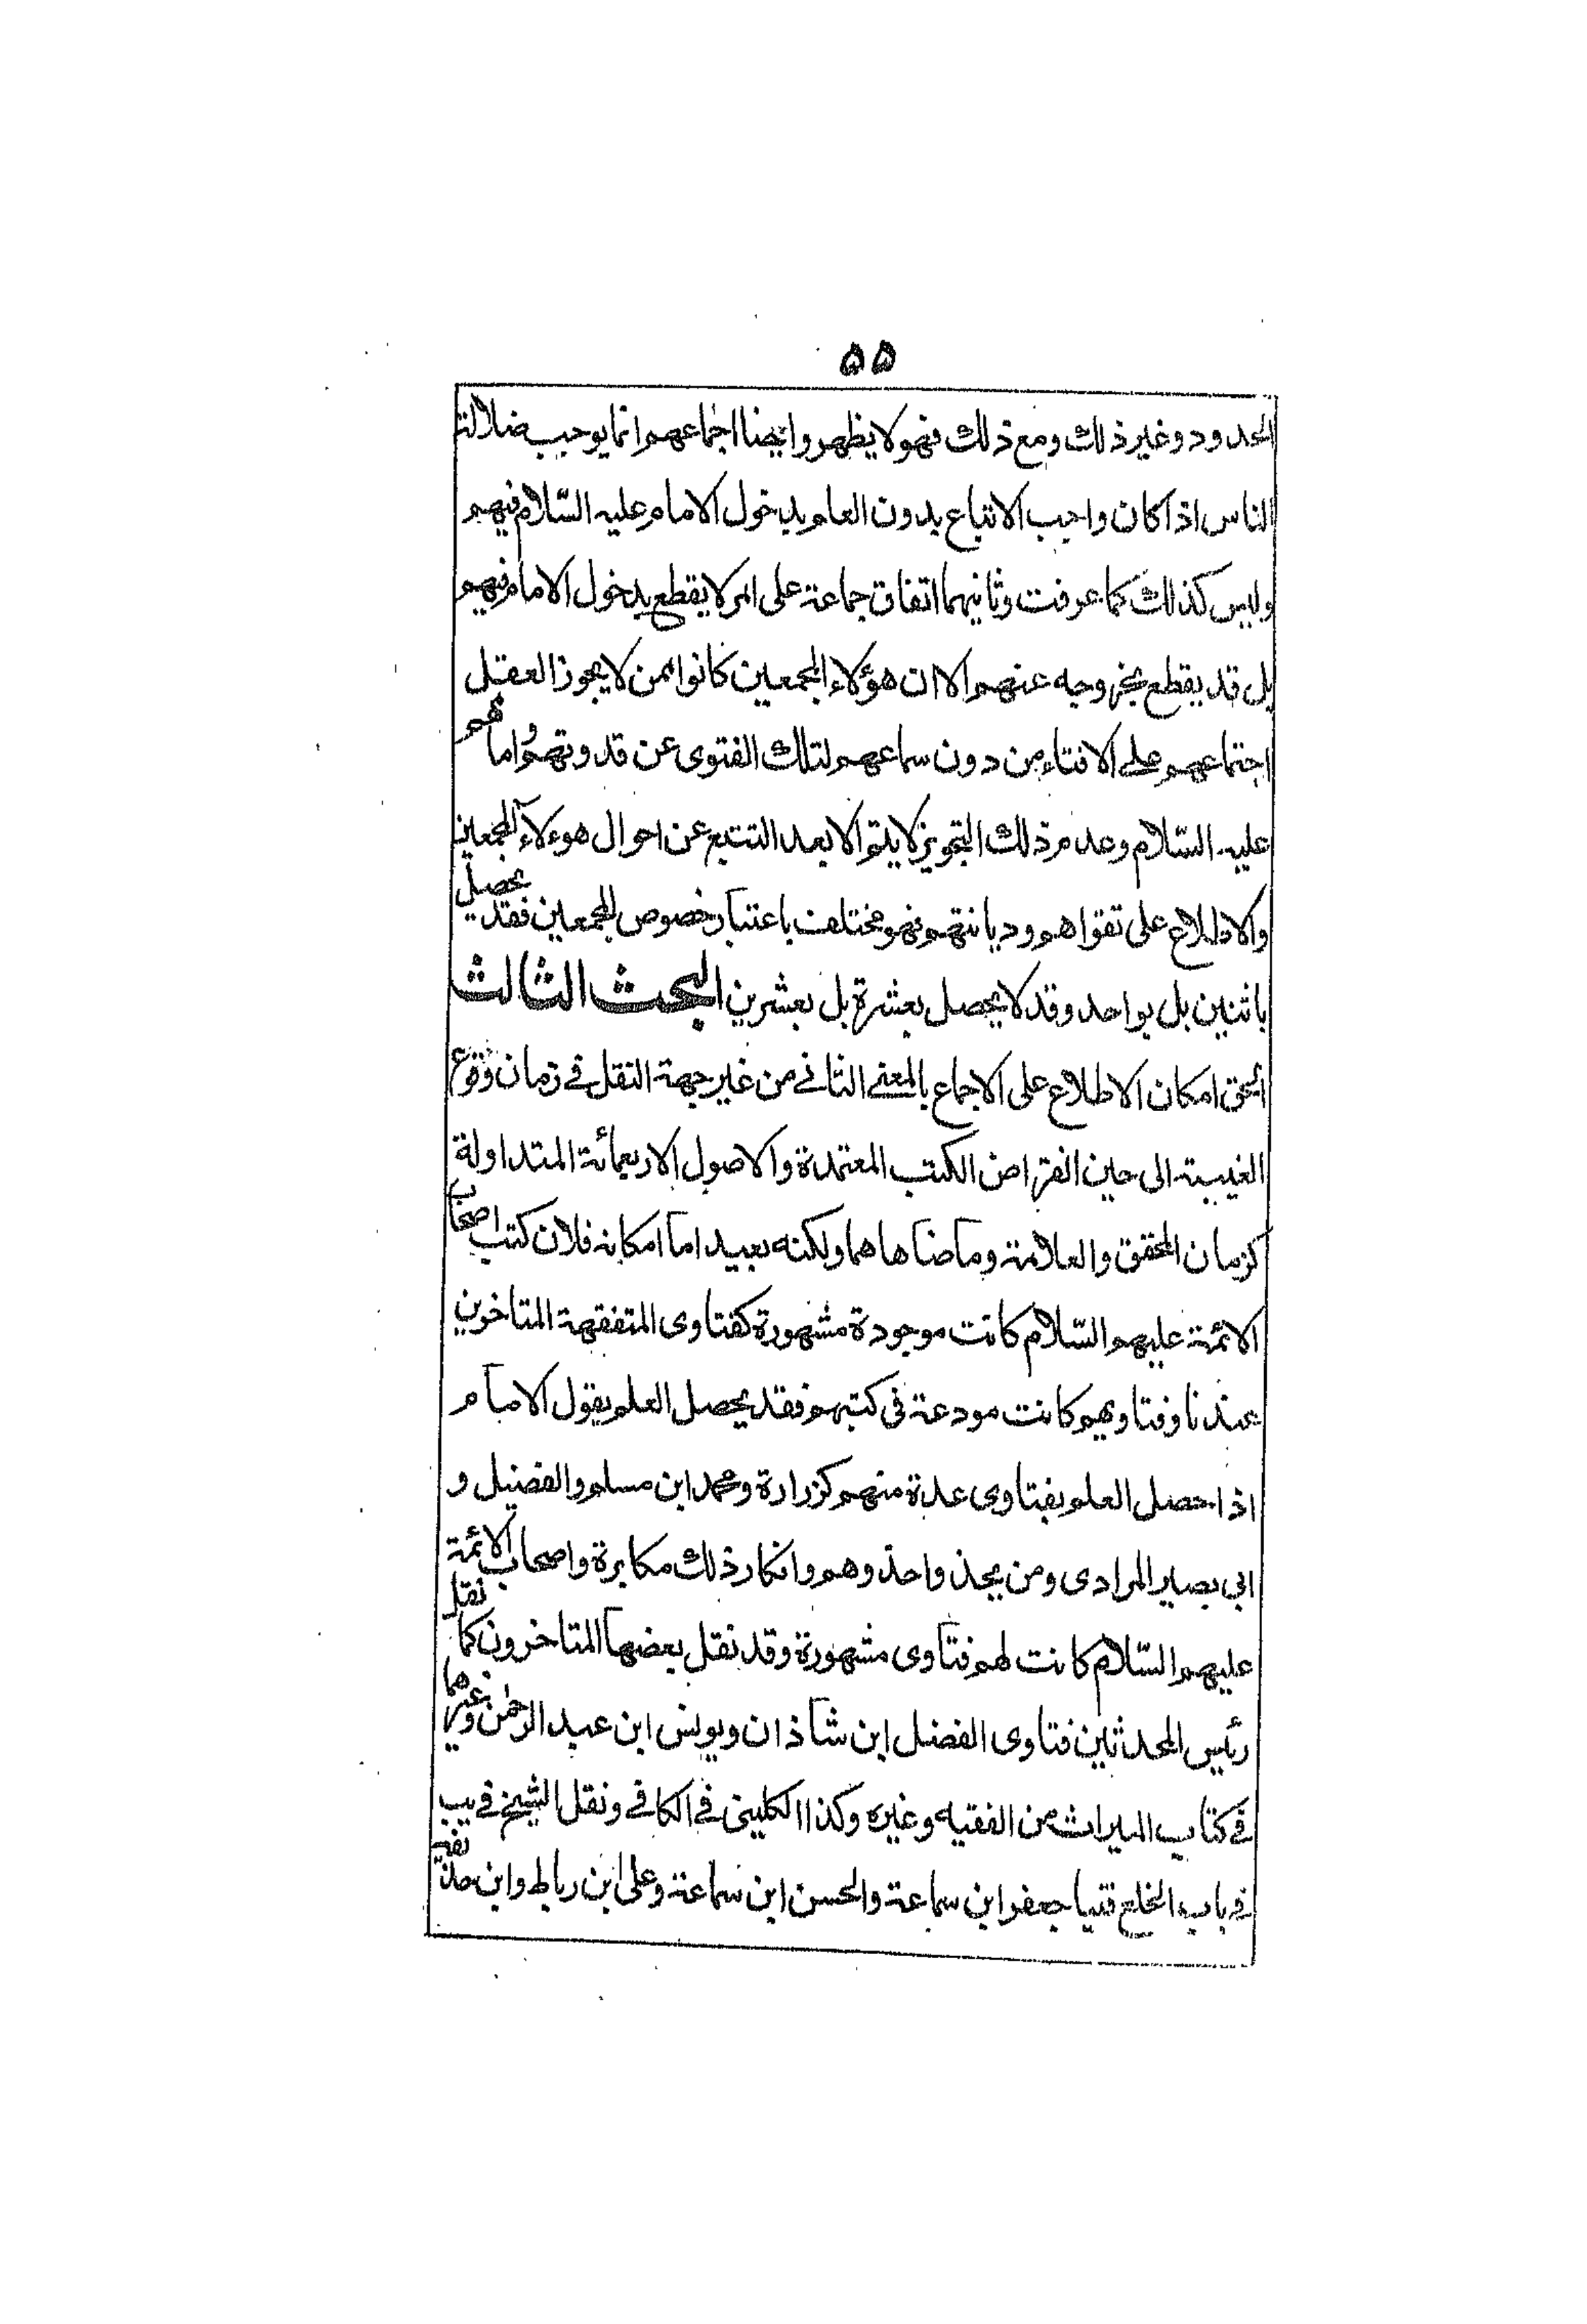 ۵۵
الحدود وغير ذلك ومع ذلك فهو لا يظهر وايضا اجماعهم انما يوجب ضلالة
الناس اذا كان واجب الاتباع بدون العلم بدخول الامام عليه السّلام فيهم
وليس كذلك كما عرفت وثانيهما اتفاق جماعة على امر لا يقطع بدخول الامام فيهم
بل قد يقطع بخروجه عنهم الا ان هؤلاء المجمعين كانوا ممن لا يجوز العقل
اجتماعهم على الافتاء من دون سماعهم لتلك الفتوى عن قدوتهم وامامهم
عليه السّلام وعدم ذلك التجويز لا يتم الا بعد التتبع عن احوال هوءلاء المجمعين
والاطلاع على تقواهم وديانتهم فهو مختلف باعتبار خصوص المجمعين فقد يحصل
باثنين بل بواحد وقد لا يحصل بعشرة بل بعشرين البحث الثالث
الحق امكان الاطلاع على الاجماع بالمعنى الثاني من غير جهة النقل في زمان وقوع
الغيبة الى حين انقراض الكتب المعتمدة والاصول الاربعمائة المتداولة
كزمان المحقق والعلامة وما ضاهاهما ولكنه بعيد اما امكانه فلان كتب اصحاب
الائمة عليهم السّلام كانت موجودة مشهورة كفتاوى المتفقهة المتاخرين
عندنا وفتاويهم كانت مودعة في كتبهم فقد يحصل العلم بقول الامام
اذا حصل العلم بفتاوى عدة منهم كزرارة ومحمد ابن مسلم والفضيل و
ابي بصير المرادى ومن يحذ واحذوهم وانكار ذلك مكابرة واصحاب الائمة
عليهم السّلام كانت لهم فتاوى مشهورة وقد نقل بعضها المتاخرون كما نقل
رئيس المحدثين فتاوى الفضل ابن شاذان ويونس ابن عبد الرحمٰن وغيرهما
في كتاب الميراث من الفقيه وغيره وكذا الكليني في الكافي ونقل الشيخ في يب
في باب الخلع فتيا جعفر ابن سماعة والحسن ابن سماعة وعلى ابن رباط وابن حذيفة